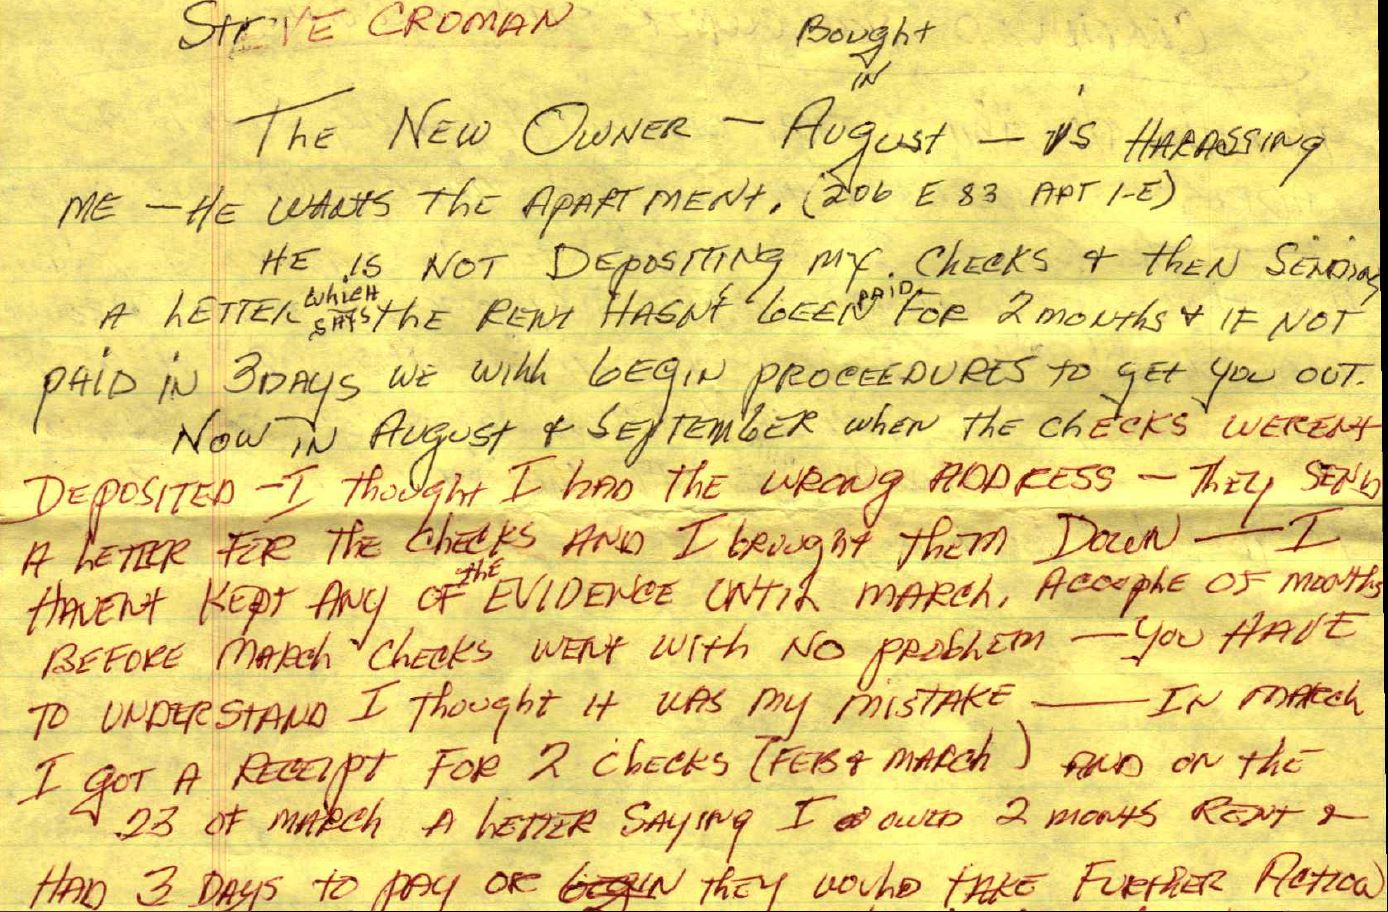 STEVE CROMAN
Bought
IN
THE NEW OWNER - August - IS HARASSING
ME - HE WANTS the APARTMENT. (206 E 83 APT 1-E)
HE IS NOT DEPOSITING MY CHECKS & thEN SENDING
A LETTER which SAYS the RENT HASNT bEEN PAID FOR 2 months & IF NOT
PAID IN 3 DAYS WE will bEGIN PROCEEDURES TO get you OUT.
NOW IN August & SEPTEMbER when the chECKS WERENT
DEPOSITED - I thought I HAD THE WRONG ADDRESS - they SEND
A LETTER FOR the CHECKS AND I brought thEM DOWN - I
HAVENT KEPT ANY OF the EVIDENCE UNTIL MARCH. A couple OF MONthS
BEFORE MARCH CHECKS WENT WITH NO PRObLEM - you HAVE
TO UNDERSTAND I thought It WAS MY MISTAKE - IN MARCH
I GOT A RECEIPT FOR 2 ChECKS (FEB & MARCH) AND ON the
23 OF MARCH A LETTER SAYING I OWED 2 MONTS RENT &
HAD 3 DAYS to PAY OR bEGIN they would tAKE FURTHER ACTION